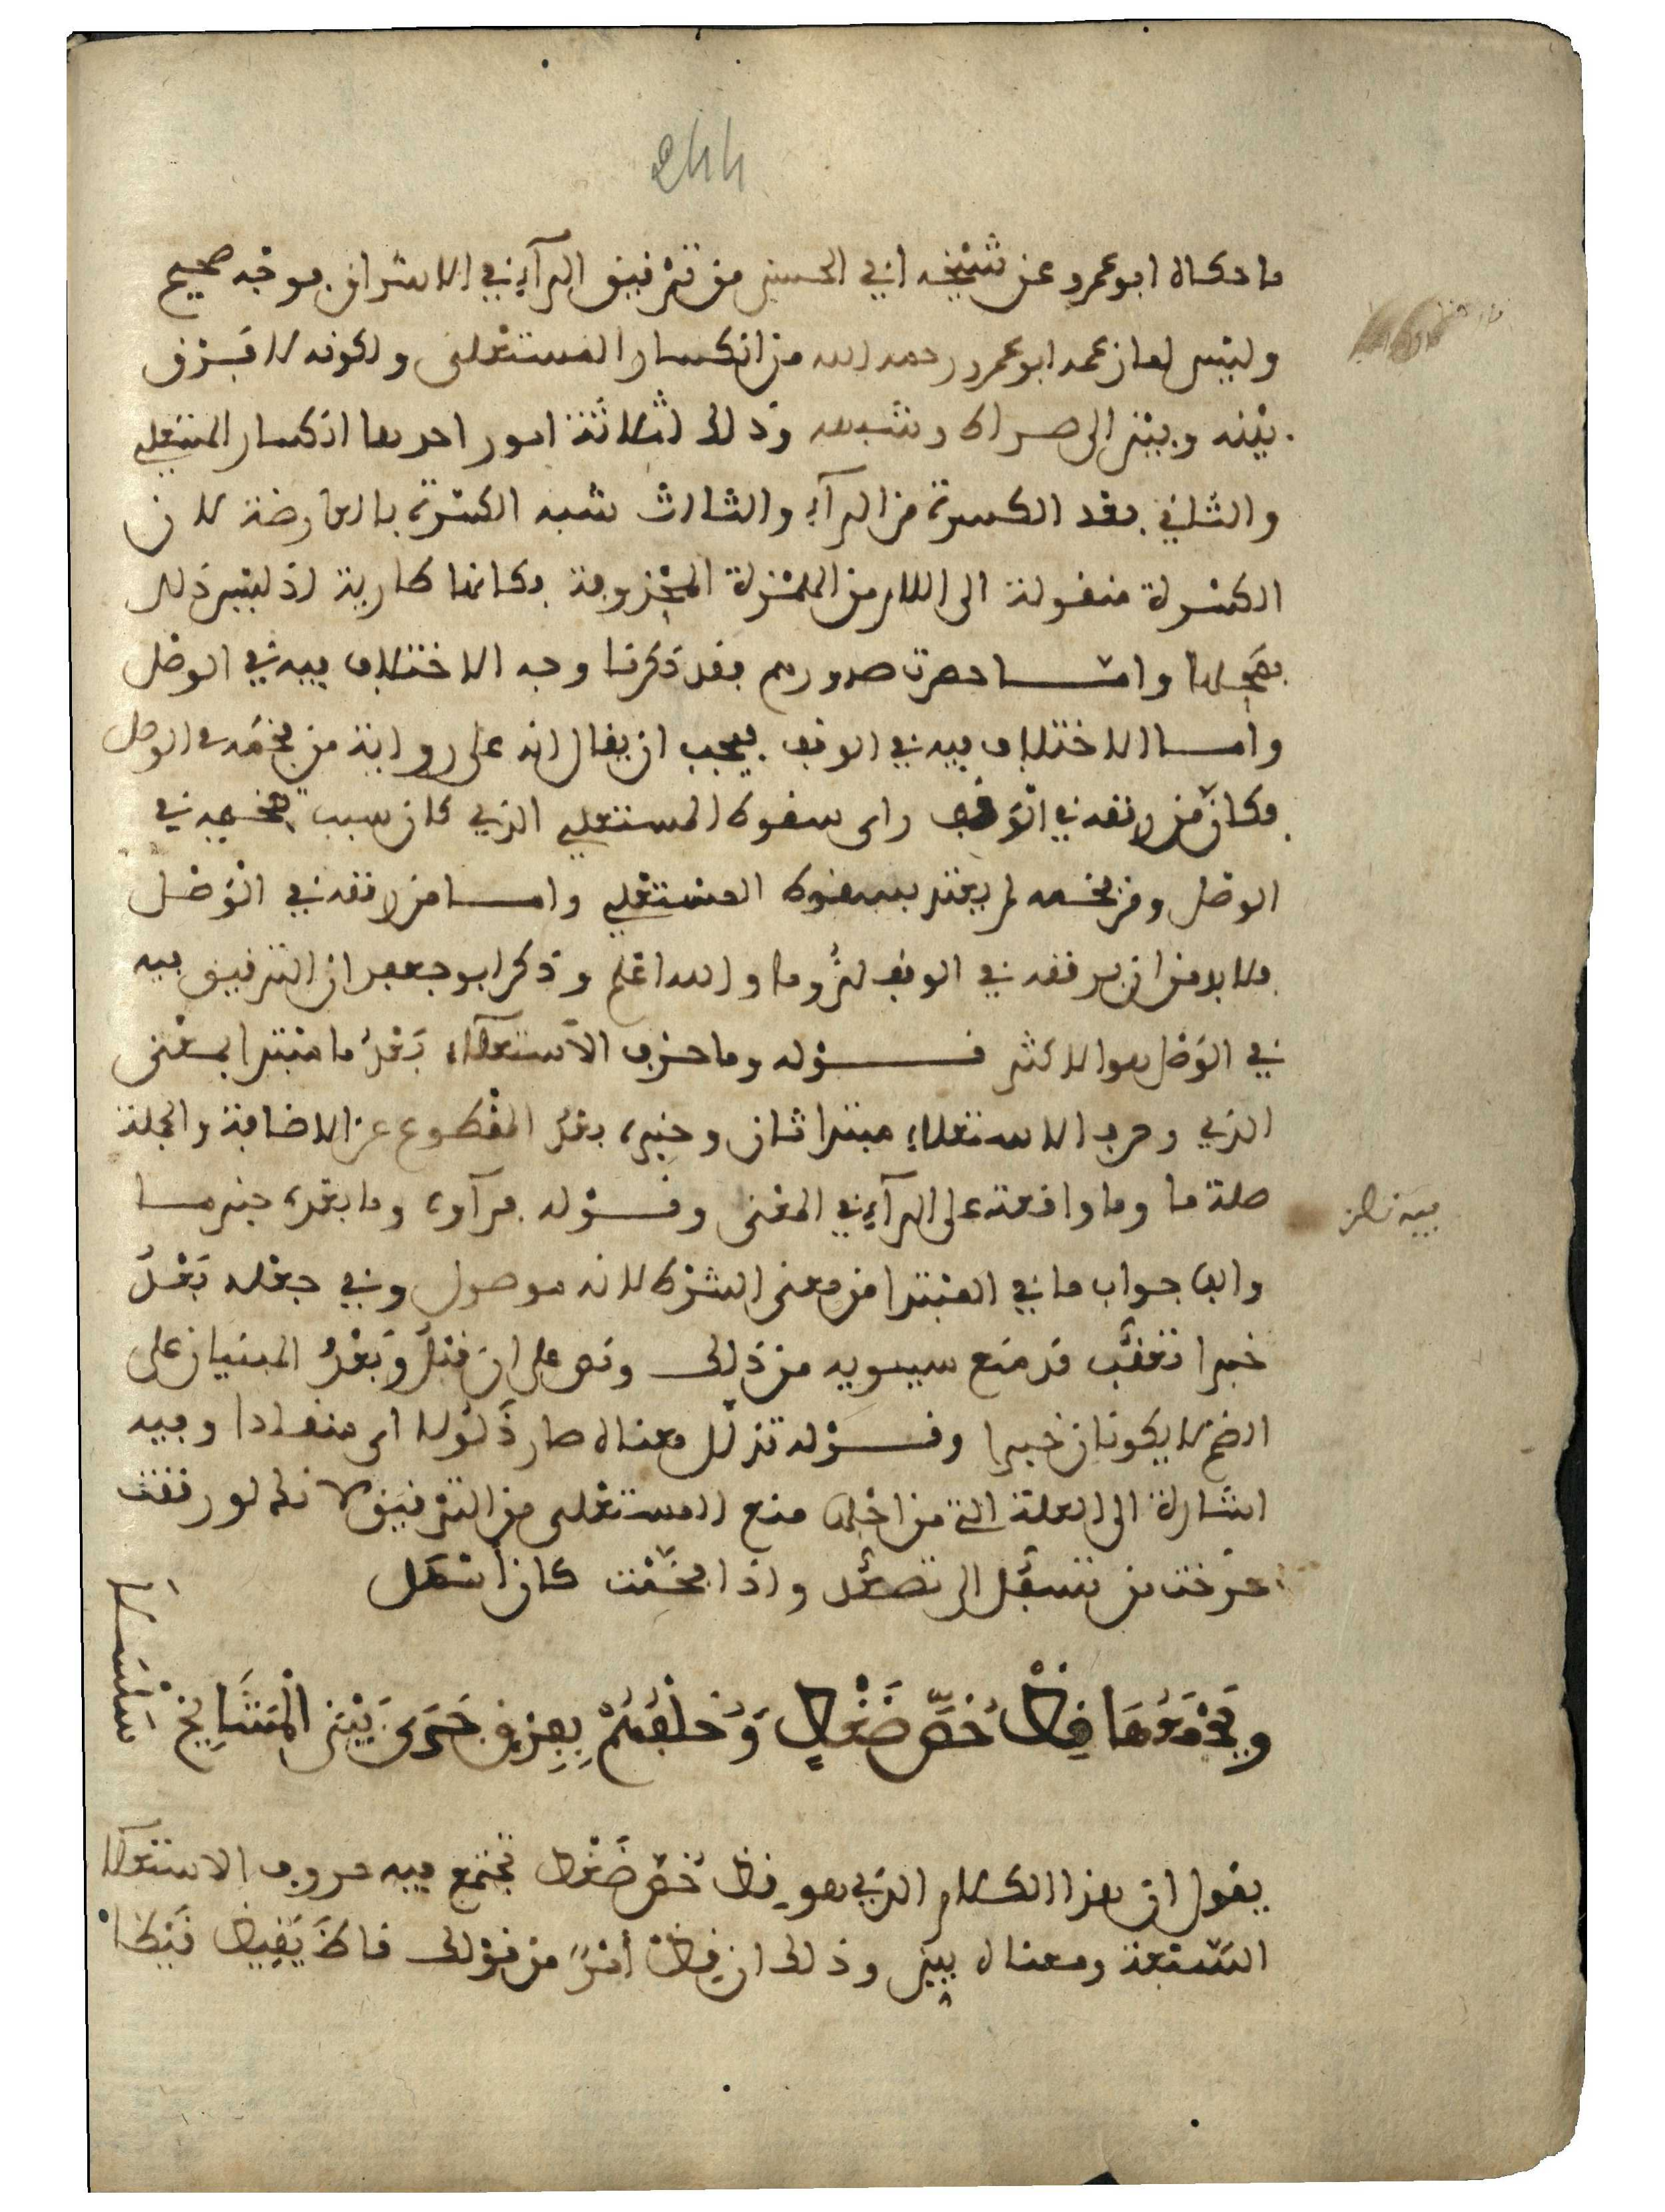 244
ما حكاه ابو عمرو عن شيخه ابي الحسن من ترقيق الرآء في الاشراق فوجه صحيح
وليس لما زعمه ابو عمرو رحمه الله من انكسار المستعلى ولكونه لا فرق
بينه وبين الى صراط وشبهه وذلك لثلاثة امور احدها انكسار المستعلي
والثاني بعد الكسرة من الرآء والثالث شبه الكسرة بالعارضة لان
الكسرة منقولة الى اللام من الهمزة المحذوفة فكانها طارية اذ ليس ذلك
بمحلها وامـا حصرت صدورهم فقد ذكرنا وجه الاختلاف فيه في الوصل
وامـا الاختلاف فيه في الوقف فيجب ان يقال انه على رواية من فخمه في الوصل
فكان من رققه في الوقف راى سقوط المستعلي الذي كان سبب تفخيمه في
الوصل ومن فخمه لم يعتد بسقوط المستعلي وامـا من رققه في الوصل
فلا بد من ان يرققه في الوقف لزوما والله اعلم وذكر ابو جعفر ان الترقيق فيه
في الوصل هو الاكثر قـوله وما حرف الاستعلاء بعد ما مبتدا بمعنى
الذي وحرف الاستعلاء مبتدا ثان وخبره بعد المقطوع عن الاضافة والجملة
صلة ما وما واقعة على الرآء في المعنى وقـوله فرآؤه وما بعده خبر مـا
والفا جواب ما في المبتدا من معنى الشرط لانه موصول وفي جعله بعد
خبرا تعقب قد منع سيبويه من ذلك ونص على ان قبل وبعد المبنيان على
الضم لا يكونان خبرا وقـوله تذلل معناه صار ذلولا اى منقادا وفيه
اشارة الى العلة التي من اجلها منع المستعلى من الترقيق لانك لو رققت
خرجت من تسفل الى تصعد واذا فخمت كان اسهل
ويجمعها قظ خص ضغط وخلفهم بفرق جرى بين المشايخ سلسلا
يقول ان هذا الكلام الذي هو قظ خص ضغط تجتمع فيه حروف الاستعلا
السبعة ومعناه بين وذلك ان قظ أمر من قولك قاظ يقيظ قيظا
فيه نظر